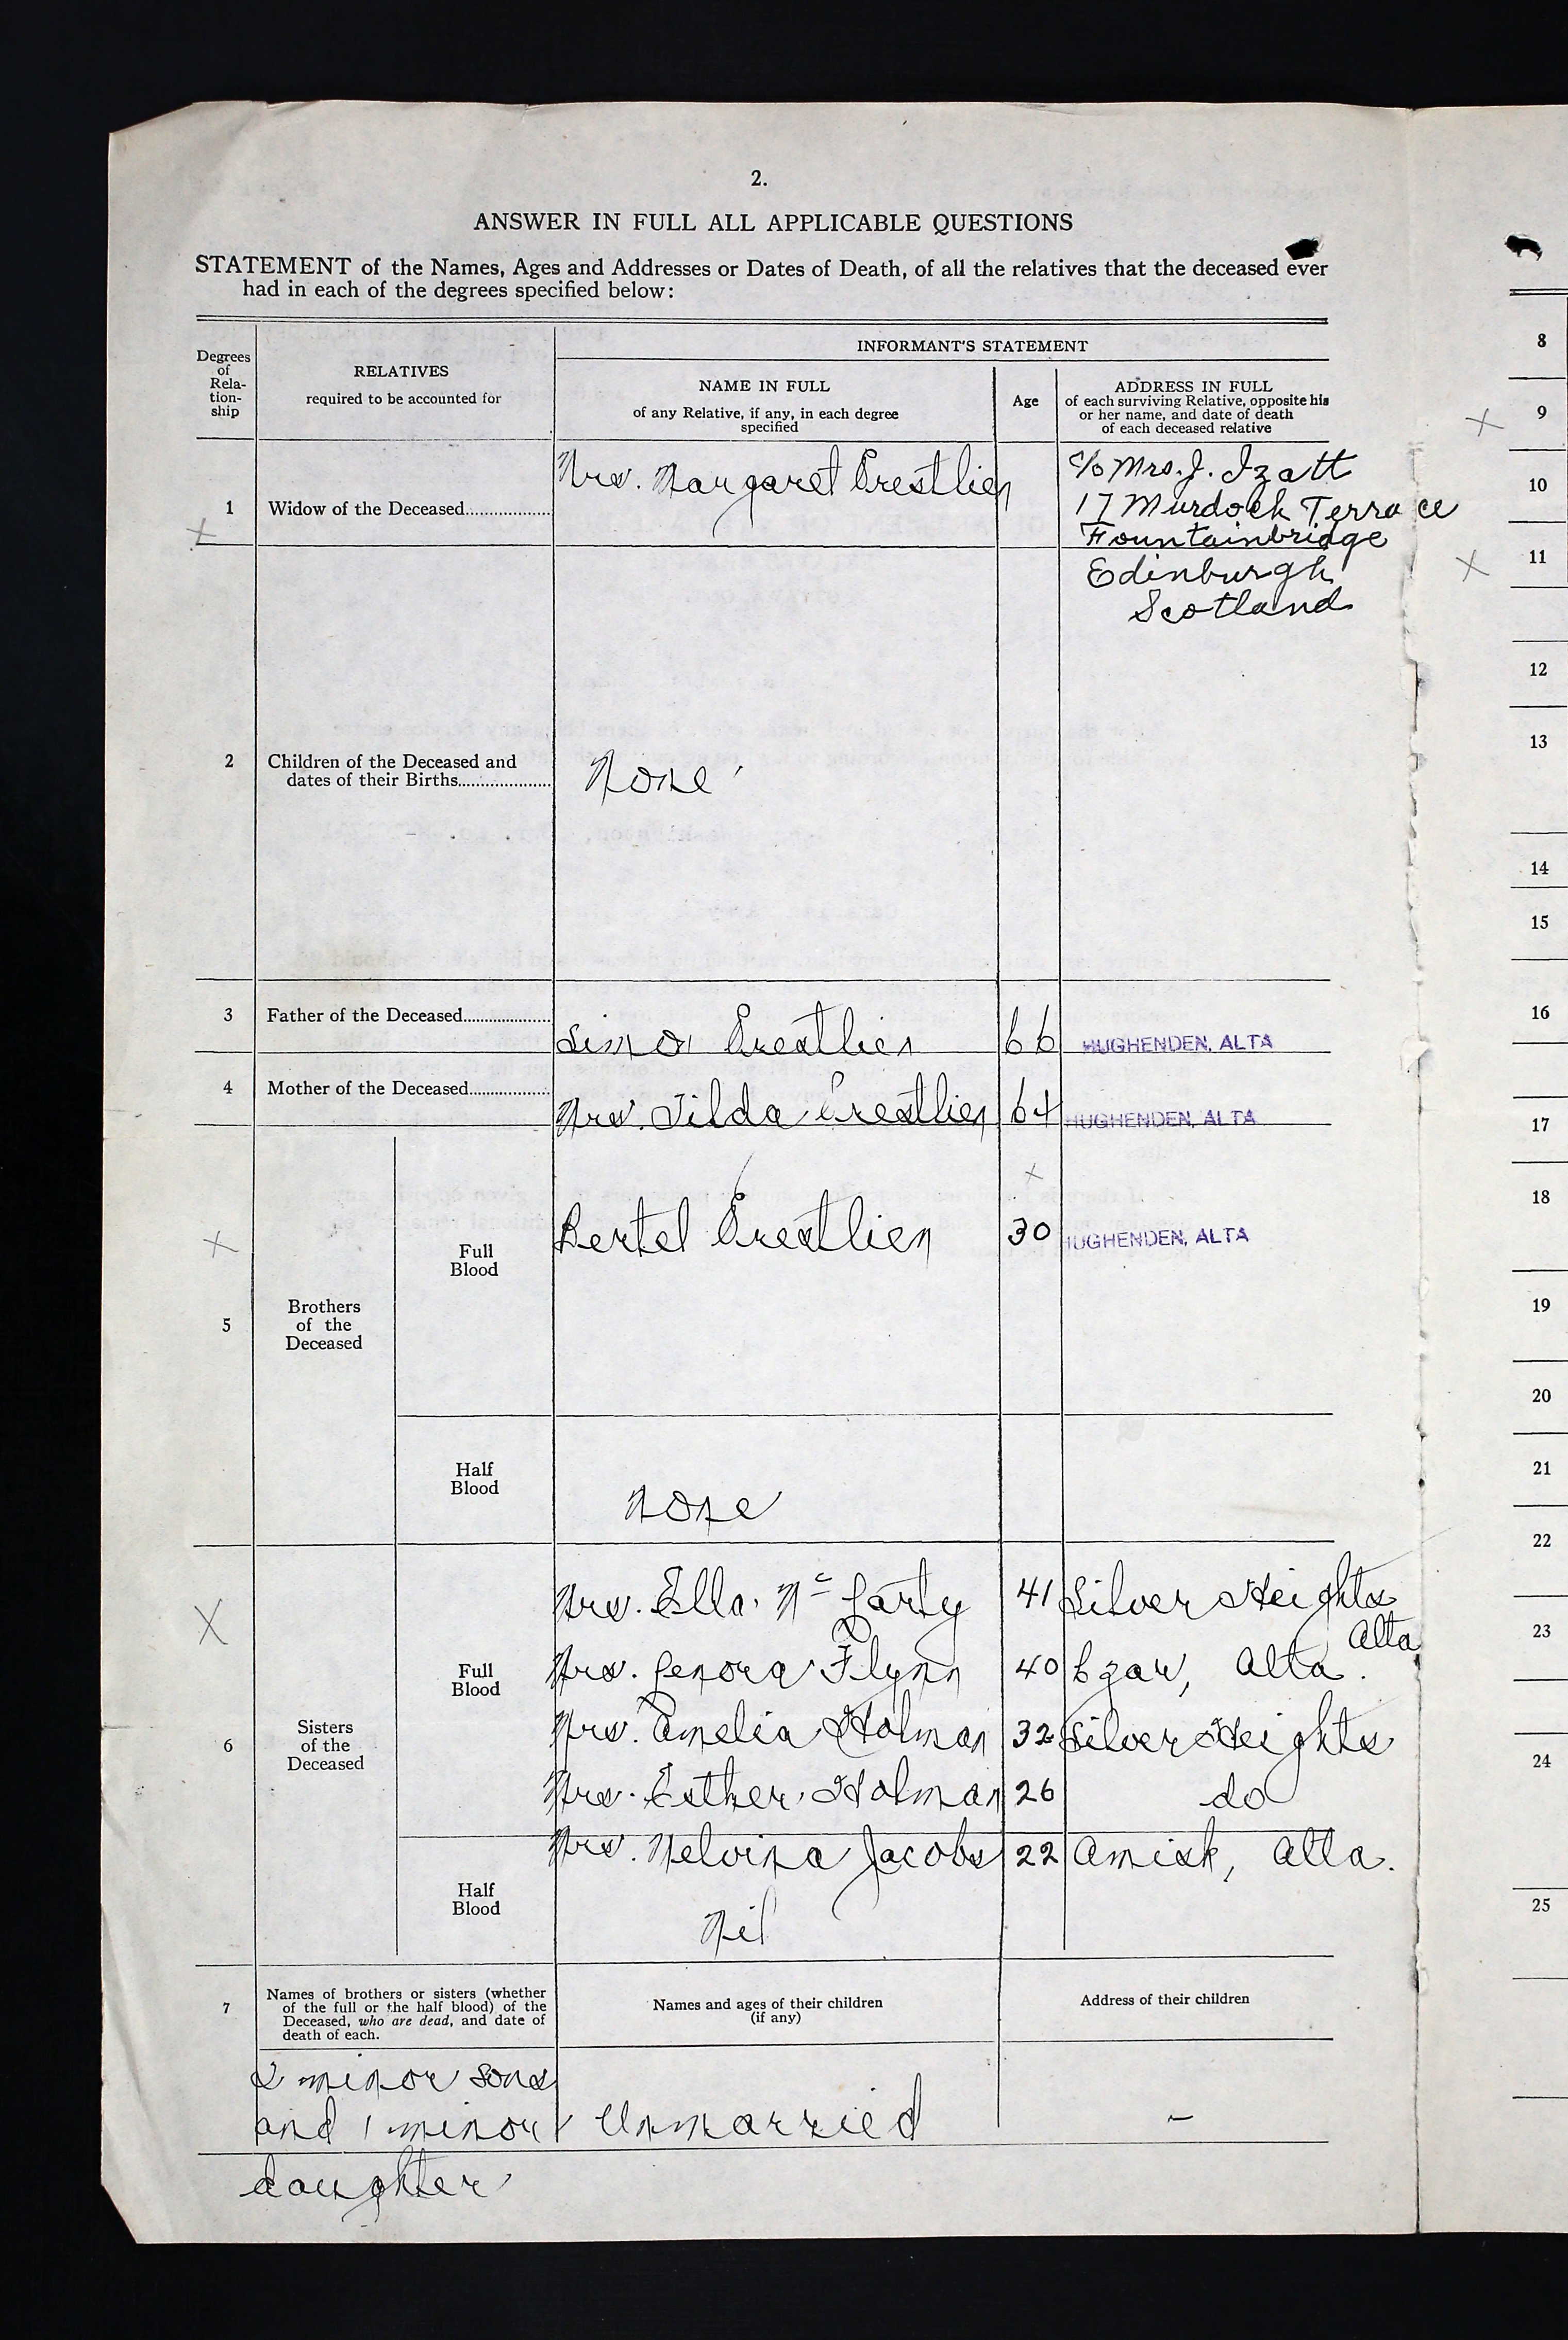 2.
ANSWER IN FULL ALL APPLICABLE QUESTIONS
STATEMENT of the Names, Ages and Addresses or Dates of Death, of all the relatives that the deceased ever
had in each of the degrees specified below:
Degrees of Rela-tion-ship
RELATIVES
required to be accounted for
INFORMANT'S STATEMENT
NAME IN FULL
of any Relative, if any, in each degree
specified
Age
ADDRESS IN FULL
of each surviving Relative, opposite his
or her name, and date of death
of each deceased relative
1 Widow of the Deceased
Mrs. Margaret Prestlien
c/o Mrs. J. Izatt
17 Murdock Terrace
Fountainbridge
Edinburgh
Scotland
2 Children of the Deceased and
dates of their Births
None
3 Father of the Deceased
Simon Prestlien 66 HUGHENDEN, ALTA
4 Mother of the Deceased
Mrs. Tilda Prestlien 64 HUGHENDEN, ALTA
5
Brothers
of the
Deceased
Full
Blood
Bertel Prestlien 30 HUGHENDEN, ALTA
Half
Blood
None
6
Sisters
of the
Deceased
Full
Blood
Mrs. Ella Mc Carty 41 Silver Heights
Alta
Mrs. Genora Flynn 40 Czar, Alta.
Mrs. Emelia Holman 32 Silver Heights
Mrs. Esther Holman 26 do
Mrs. Melvina Jacobs 22 Amisk, Alta.
Half
Blood
Nil
7
Names of brothers or sisters (whether
of the full or the half blood) of the
Deceased, who are dead, and date of
death of each.
Names and ages of their children
(if any)
Address of their children
2 minor sons
and 1 minor Unmarried –
daughter
8
9
10
11
12
13
14
15
16
17
18
19
20
21
22
23
24
25